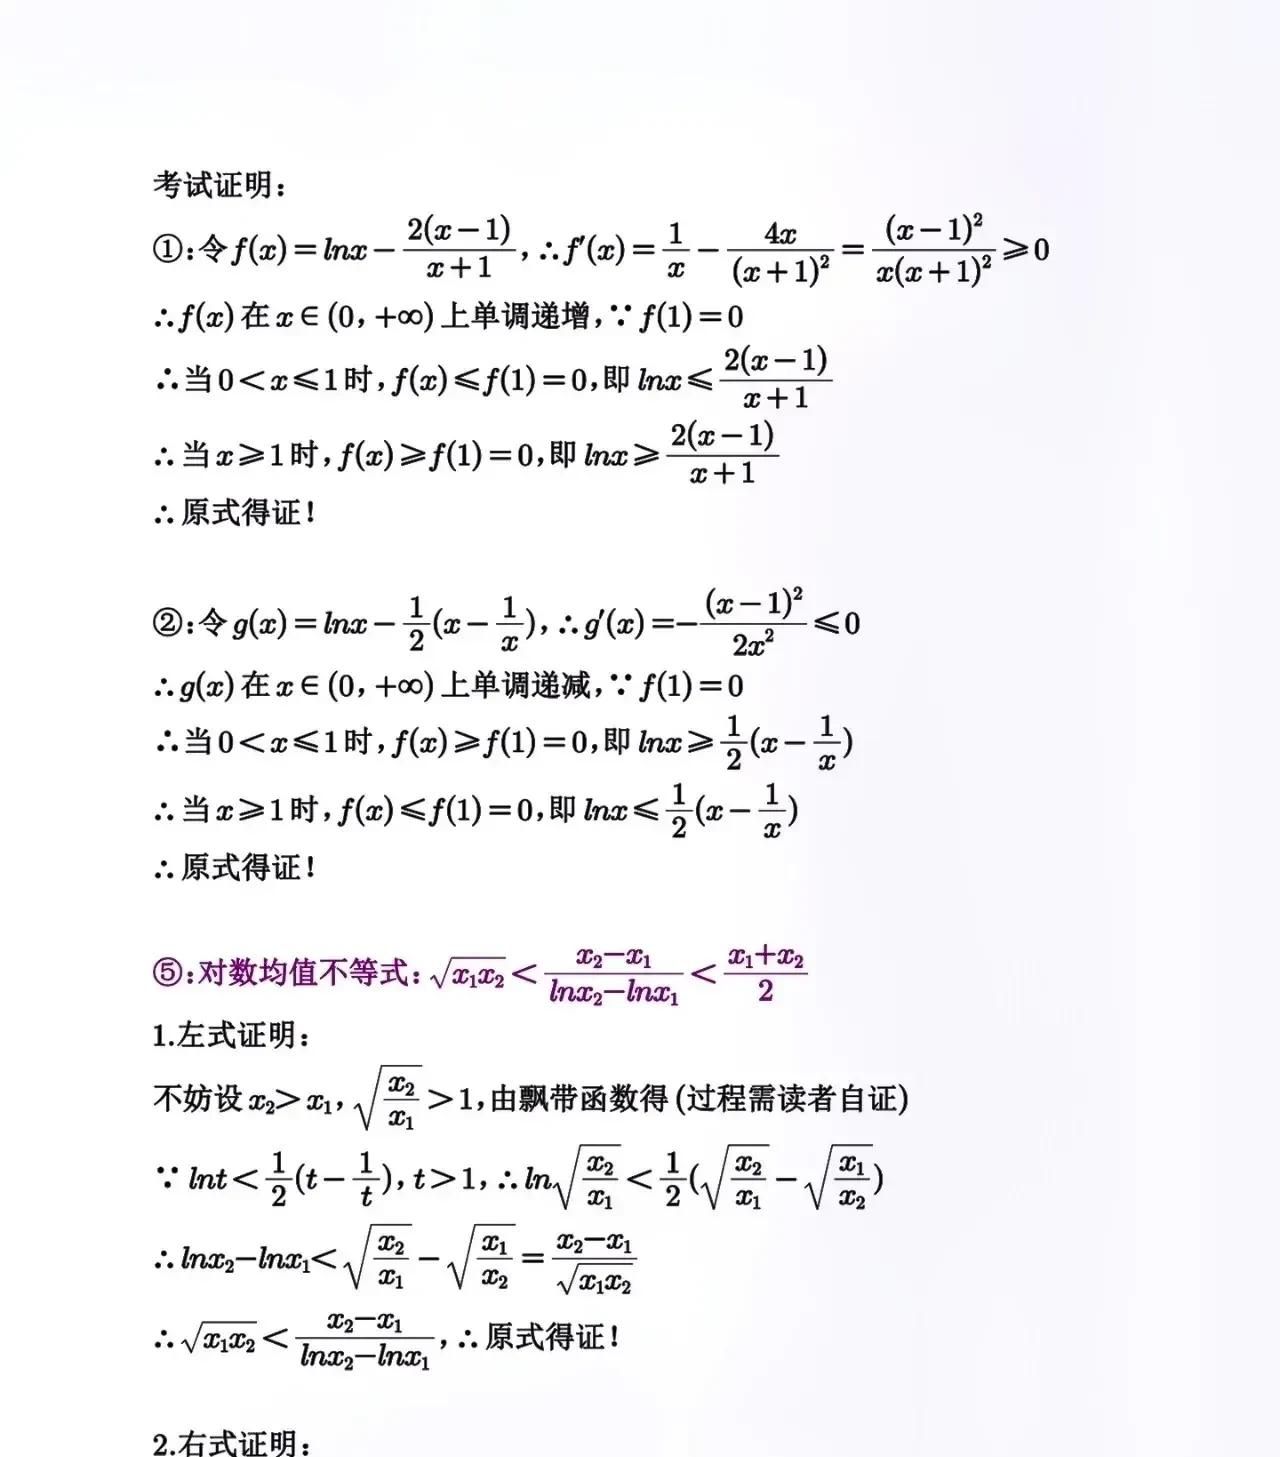 考试证明:
①:令 f(x) = lnx − \frac{2(x−1)}{x+1}, ∴f′(x) = \frac{1}{x} − \frac{4x}{(x+1)^2} = \frac{(x−1)^2}{x(x+1)^2} ⩾ 0
∴f(x) 在 x ∈ (0, +∞) 上单调递增, ∵ f(1) = 0
∴当 0 < x ⩽ 1 时, f(x) ⩽ f(1) = 0, 即 lnx ⩽ \frac{2(x−1)}{x+1}
∴ 当 x ⩾ 1 时, f(x) ⩾ f(1) = 0, 即 lnx ⩾ \frac{2(x−1)}{x+1}
∴ 原式得证!
②:令 g(x) = lnx − \frac{1}{2}(x − \frac{1}{x}), ∴g′(x) = −\frac{(x−1)^2}{2x^2} ⩽ 0
∴g(x) 在 x ∈ (0, +∞) 上单调递减, ∵ f(1) = 0
∴当 0 < x ⩽ 1 时, f(x) ⩾ f(1) = 0, 即 lnx ⩾ \frac{1}{2}(x − \frac{1}{x})
∴ 当 x ⩾ 1 时, f(x) ⩽ f(1) = 0, 即 lnx ⩽ \frac{1}{2}(x − \frac{1}{x})
∴ 原式得证!
⑤:对数均值不等式: \sqrt{x_1x_2} < \frac{x_2−x_1}{lnx_2−lnx_1} < \frac{x_1+x_2}{2}
1.左式证明:
不妨设 x_2 > x_1, \sqrt{\frac{x_2}{x_1}} > 1, 由飘带函数得 (过程需读者自证)
∵ lnt < \frac{1}{2}(t − \frac{1}{t}), t > 1, ∴ ln\sqrt{\frac{x_2}{x_1}} < \frac{1}{2}(\sqrt{\frac{x_2}{x_1}} − \sqrt{\frac{x_1}{x_2}})
∴ lnx_2−lnx_1 < \sqrt{\frac{x_2}{x_1}} − \sqrt{\frac{x_1}{x_2}} = \frac{x_2−x_1}{\sqrt{x_1x_2}}
∴ \sqrt{x_1x_2} < \frac{x_2−x_1}{lnx_2−lnx_1}, ∴ 原式得证!
2.右式证明: